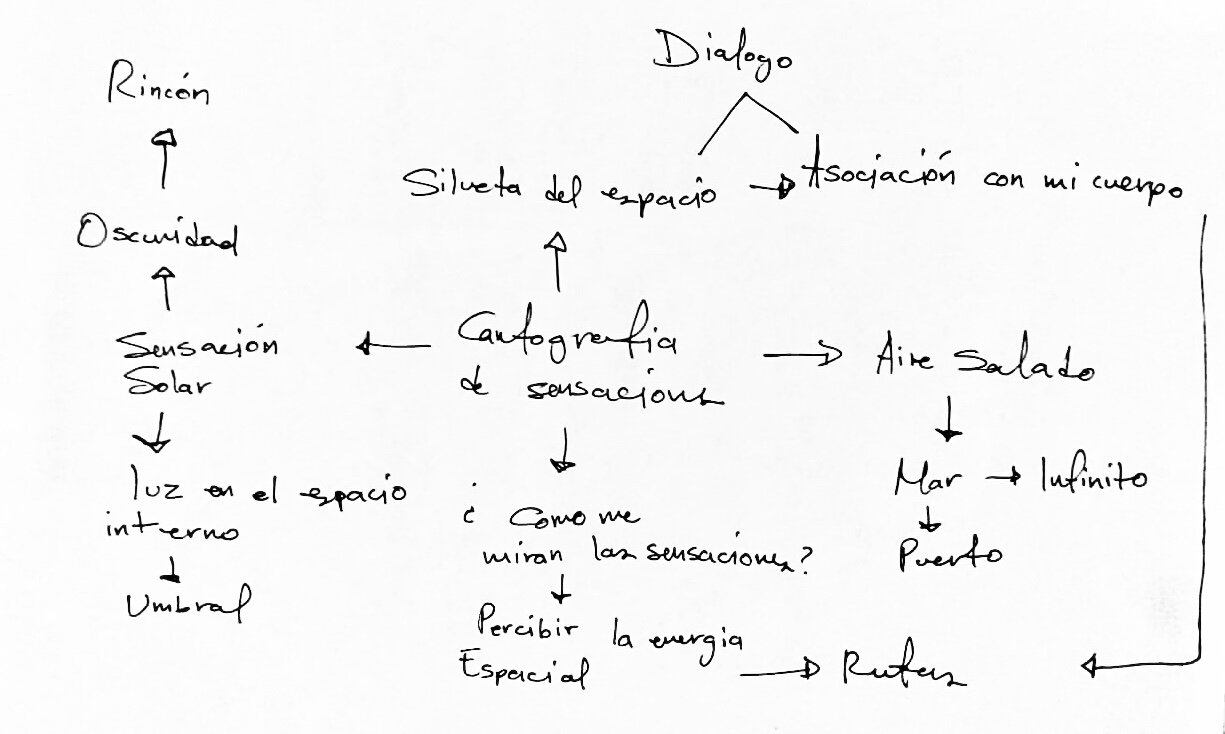 Dialogo
Rincón
Silueta del espacio
Asociación con mi cuerpo
Oscuridad
Sensación
Solar
Cartografia
de sensaciones
Aire Salado
luz en el espacio
interno
Umbral
¿ Como me
miran las sensaciones?
Mar
Infinito
Puerto
Percibir la energia
Espacial
Rutas